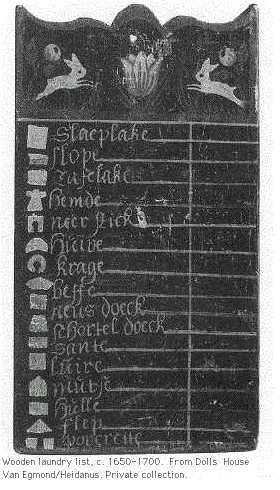 Slaeplake
slope
Tafelake
hemde
neer stick
Huive
krage
beffe
neus doeck
schortel doeck
Sante
luire
mutse
Hulle
flep
Wooden laundry list, c. 1650-1700. From Dolls House
Van Egmond/Heidanus. Private collection.